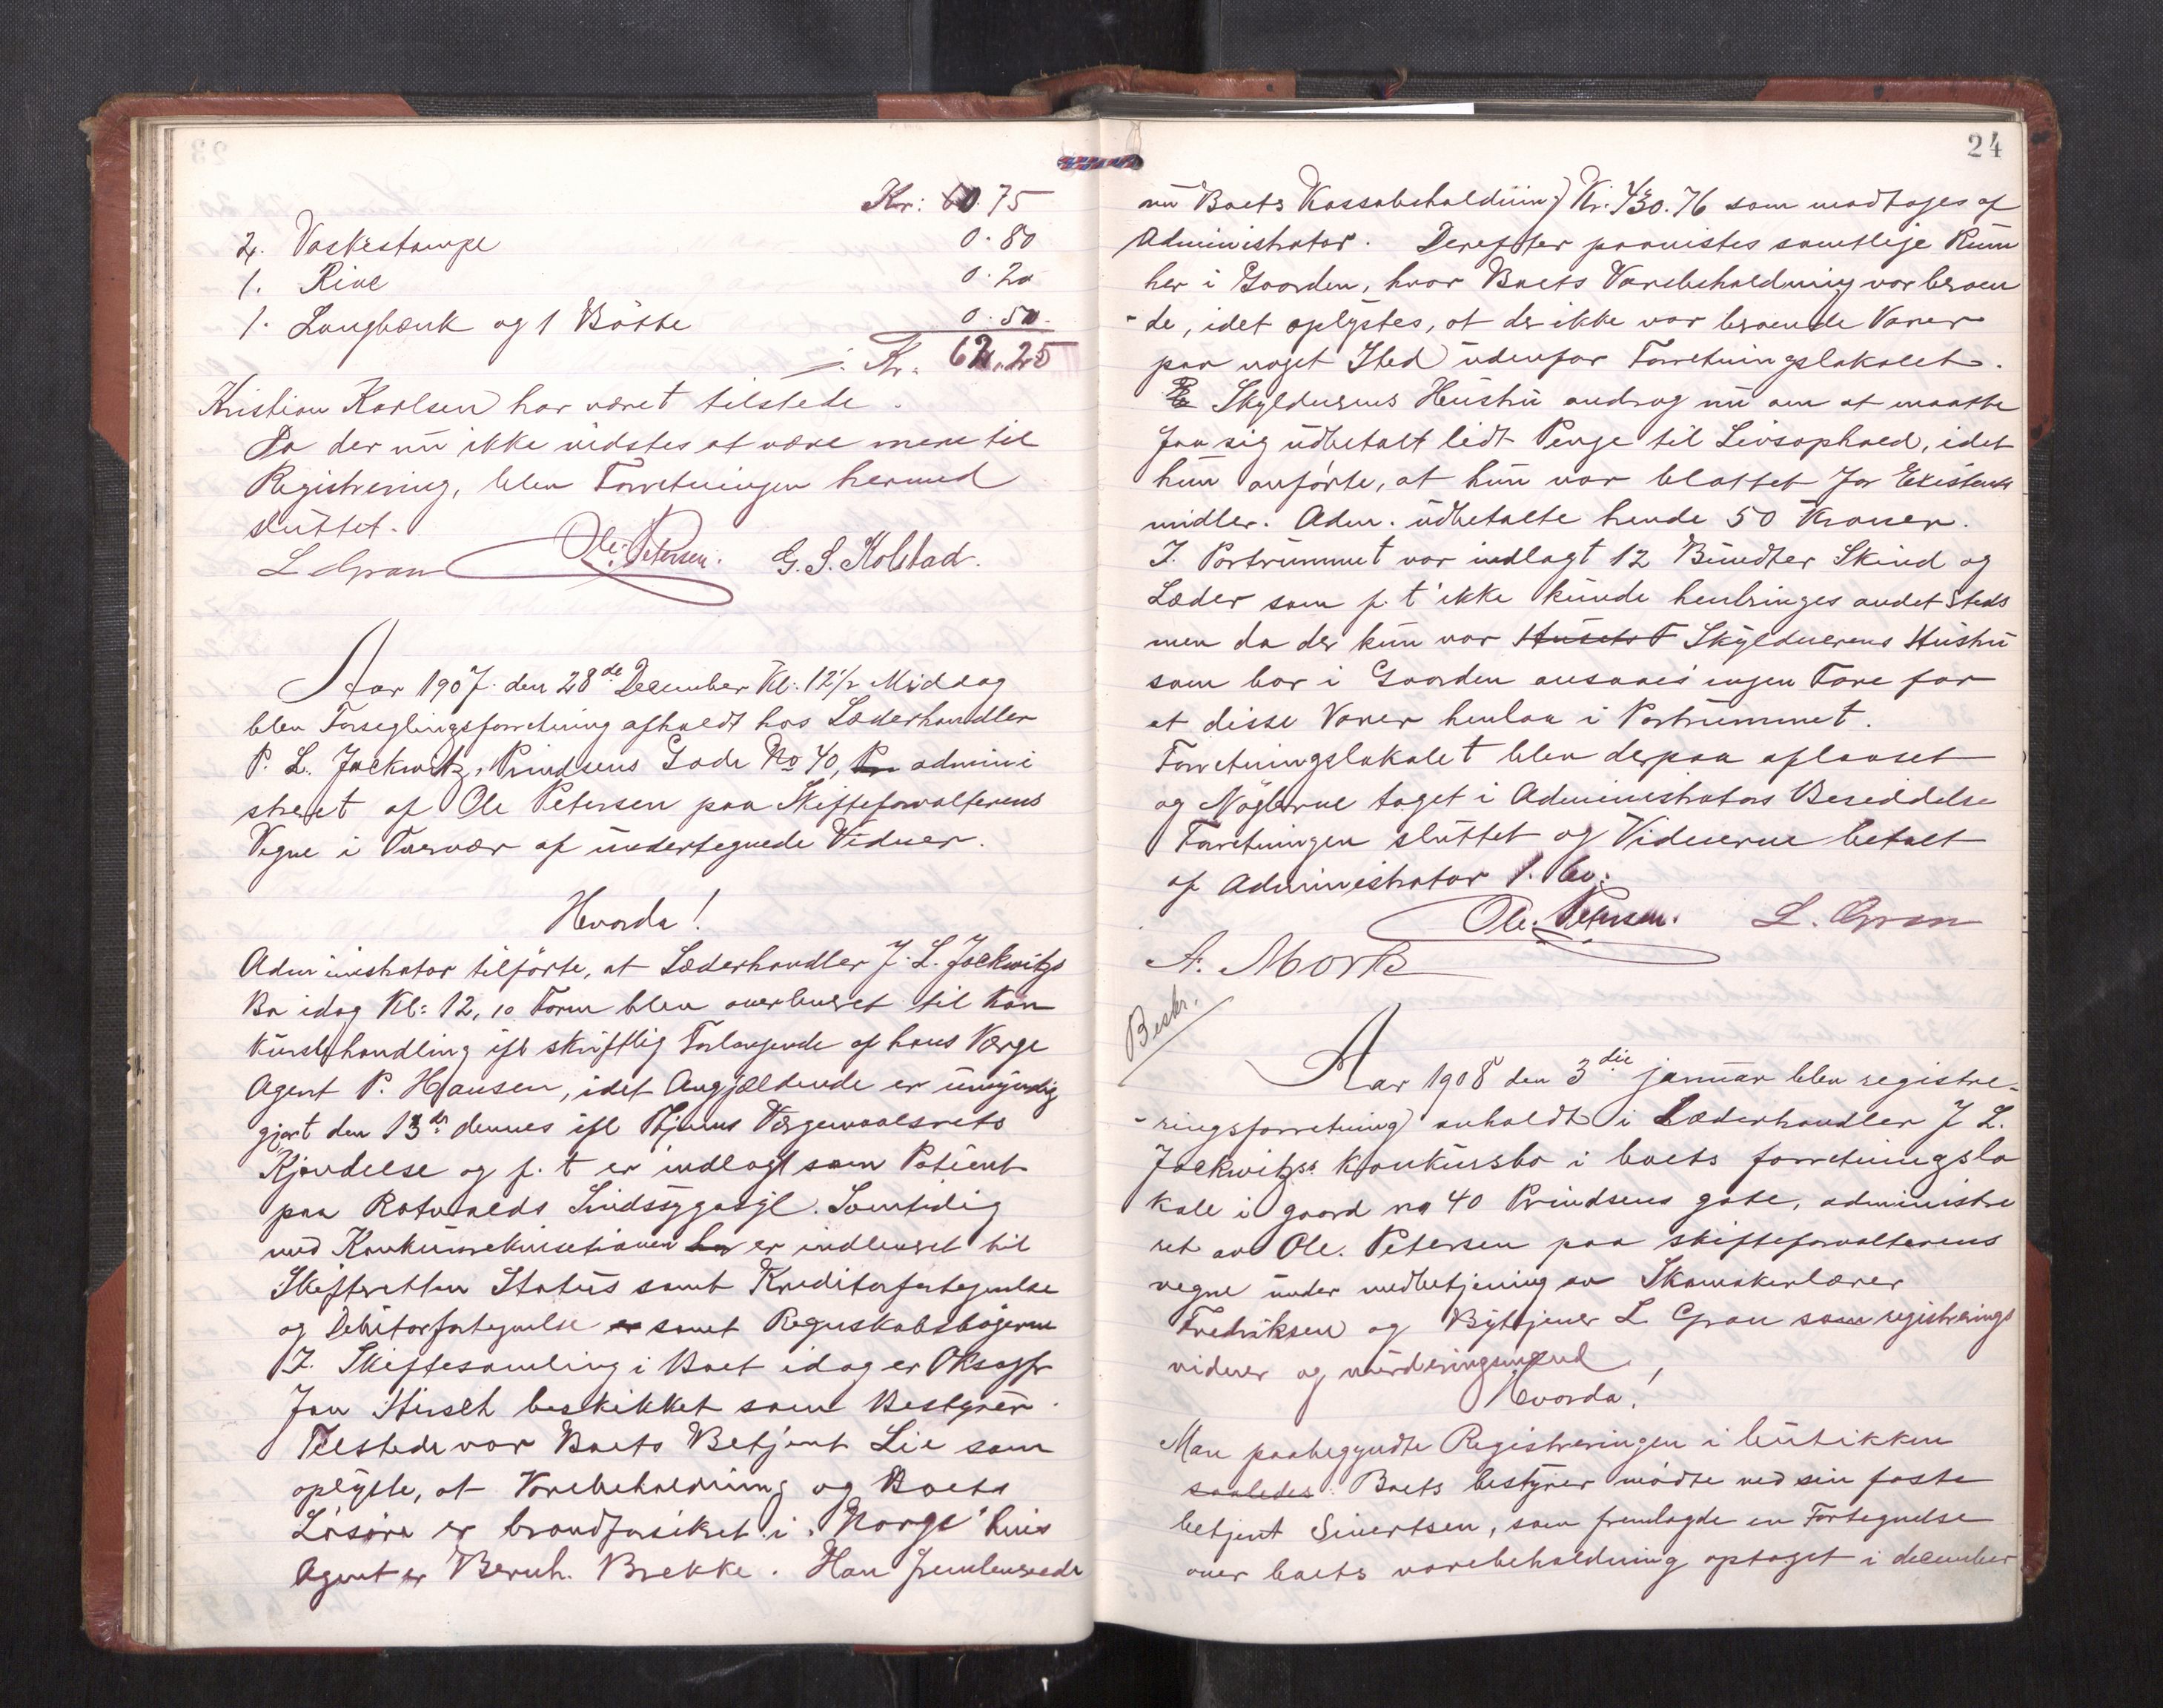 Kr: 60.75
2. Vaskestampe 0.80
1. Rive 0.20
1. Langbænk og 1 Bøtte 0.50
Kr. 62.25
Kristian Karlsen har været tilstede.
Da der nu ikke vidstes at være mere til
Registrering, blev Forretningen hermed
sluttet.
L Gran Ole Petersen. G. S. Kolstad.
Aar 1907 den 28de December Kl: 12 1/2 Middag
blev Forseglingsforretning afholdt hos Læderhandler
P. L. Jackwitz, Prindsens Gade No 40, admini
streret af Ole Petersen paa Skifteforvalterens
Vegne i Overvær af undertegnede Vidner.
Hvorda!
Administrator tilførte, at Læderhandler J. L. Jackwitz's
Bo idag Kl: 12,10 Form blev overleveret til Kon
kursbehandling ifl skriftlig Forlangende af hans Værge
Agent P. Hansen, idet Angjældende er umyndig
gjort den 13de dennes ifl Thjems Værgemaalsrets
Kjendelse og p. t er indlagt som Patient
paa Rotvolds Sindssygeasyl. Samtidig
med Konkursrekvisitionen er indleveret til
Skifteretten Status samt Kreditorfortegnelse
og Debitorfortegnelse samt Regnskabsbøgerne
I. Skiftesamling i Boet idag er Oksagfr
Jan Hirsch beskikket som Bestyrer.
Tilstede var Boets Betjent Lie som
oplyste, at Varebeholdning og Boets
Løsøre er brandforsikret i "Norge" hvis
Agent er Bernh. Brekke. Han fremleverede
24
nu Boets Kassabeholdning Kr. 430.76 som modtages af
Administrator. Derefter paavistes samtlige Rum
her i Gaarden, hvor Boets Varebeholdning var beroen
-de, idet oplystes, at der ikke var beroende Varer
paa noget Sted udenfor Forretningslokalet.
Skyldnerens Hustru androg nu om at maatte
faa sig udbetalt lidt Penge til Livsophold, idet
hun anførte, at hun var blottet for Existents
midler. Adm. udbetalte hende 50 Kroner.
I. Portrummet var indlagt 12 Bundter Skind og
Læder som p. t ikke kunde henbringes andet Steds
men da der kun var Huset F Skyldnerens Hustru
som bor i Gaarden ansaaes ingen Fare for
at disse Varer henlaa i Portrummet.
Forretningslokalet blev derpaa aflaaset
og Nøglerne taget i Administrators Besiddelse
Forretningen sluttet og Vidnerne betalt
af Administrator
Ole Petersen. L. Gran
A. Mork
Beskr.
Aar 1908 den 3die januar blev registre-
-ringsforretning avholdt i Læderhandler J L.
Jackwitzs konkursbo i boets forretningslo
kale i gaard no 40 Prindsens gate, administre
ret av Ole. Petersen paa skifteforvalterens
vegne under medbetjening av Skomakerlærer
Fredriksen og Bytjener L Gran som registrerings
vidner og vurderingsmænd
Hvorda!
Man paabegyndte Registreringen i butikken
saaledes: Boets bestyrer mødte ved sin faste
betjent Sivertsen, som fremlagde en Fortegnelse
over boets varebeholdning optaget i december